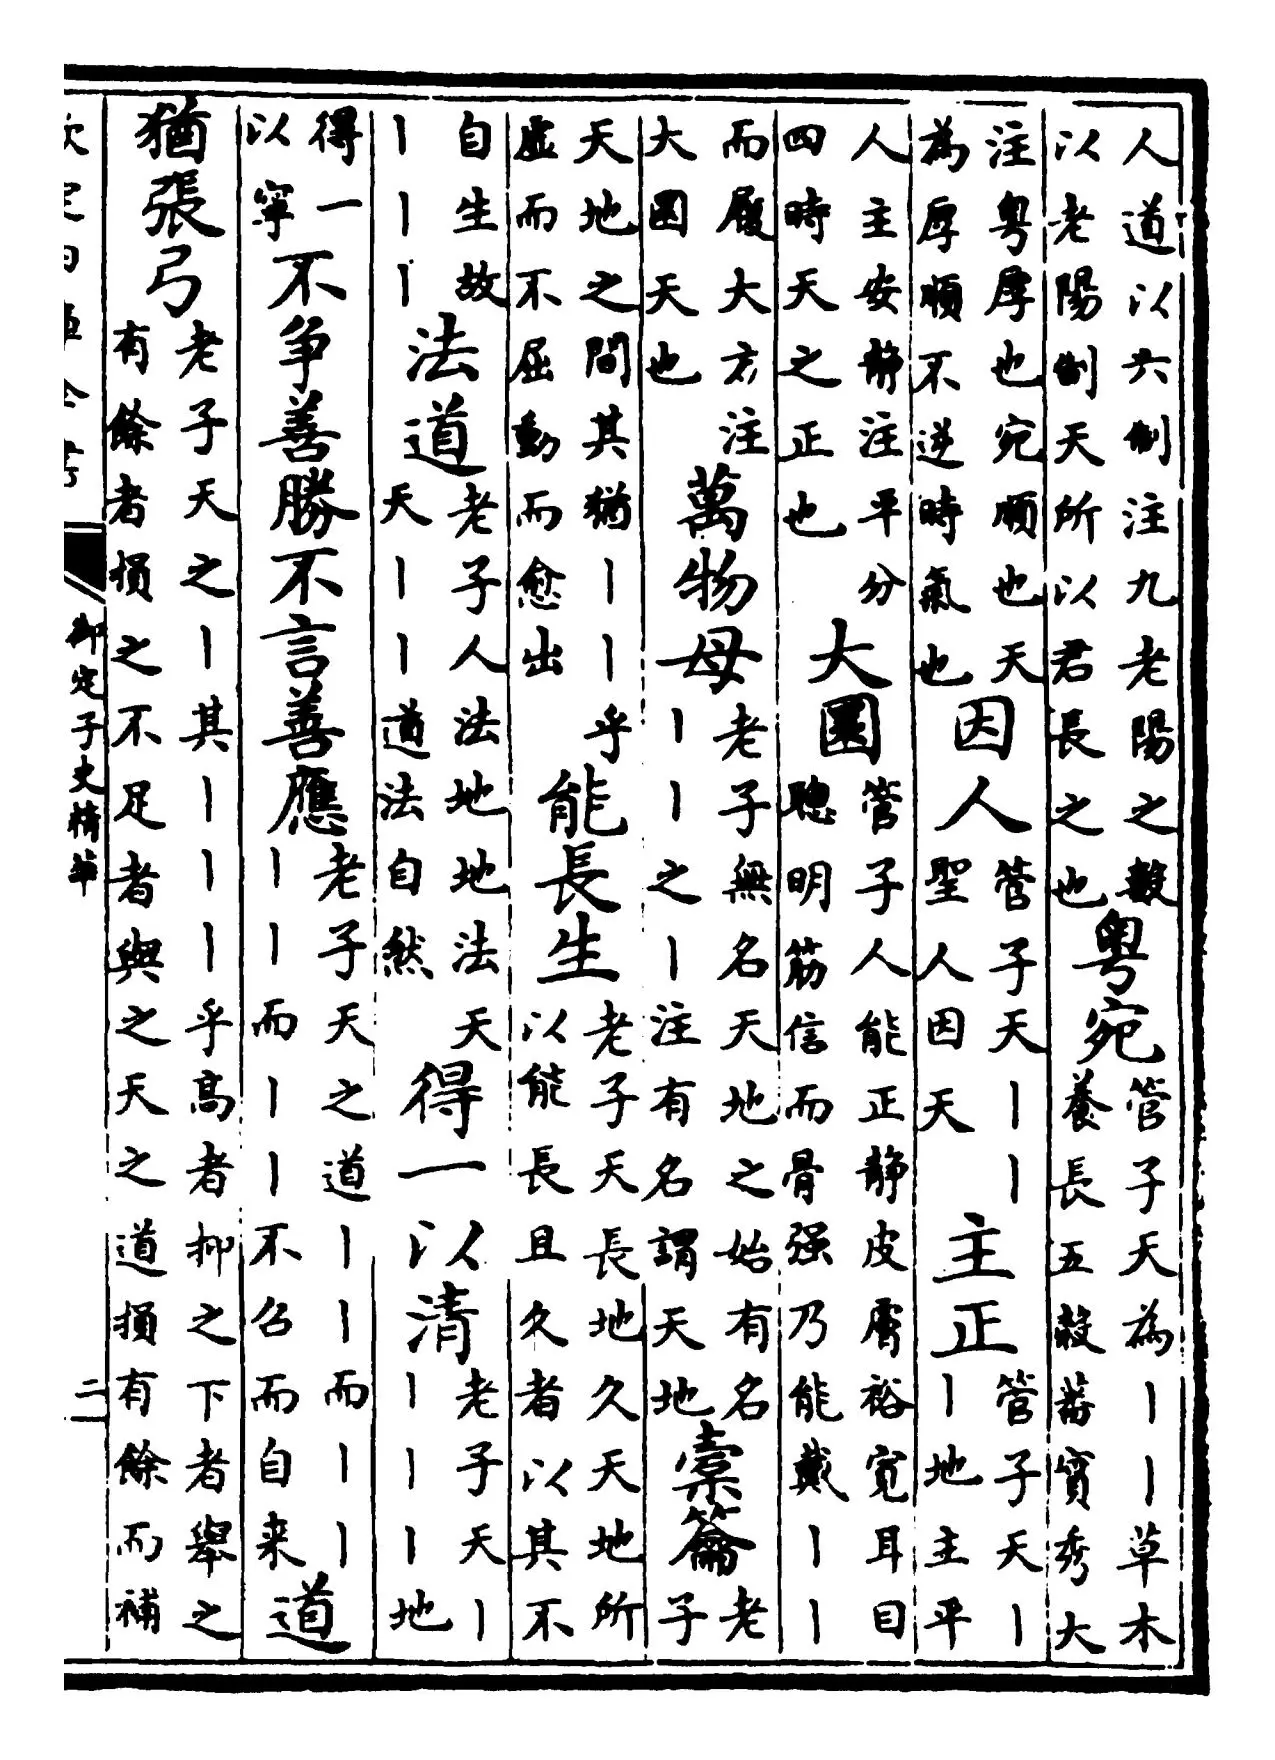 人道以六制注九老陽之數以老陽制天所以君長之也粤宛管子天為丨丨草木養長五穀蕃實秀大
注粤厚也宛順也天為厚順不逆時氣也因人管子天丨丨聖人因天主正管子天丨丨地主平
人主安静注平分四時天之正也大圜管子人能正静皮膚裕寛耳目聰明筋信而骨强乃能戴丨丨
而履大方注大圜天也萬物母老子無名天地之始有名丨丨之丨注有名謂天地橐籥老子
天地之間其猶丨丨乎虚而不屈動而愈出能長生老子天長地久天地所以能長且久者以其不
自生故丨丨丨法道老子人法地地法天天丨丨道法自然得一以清老子天丨丨丨丨地
得一以寧不争善勝不言善應老子天之道丨丨而丨丨丨丨而丨丨不召而自来道
猶張弓老子天之丨其丨丨丨乎高者抑之下者舉之有餘者損之不足者與之天之道損有餘而補
欽定四庫全書
御定子史精華
二